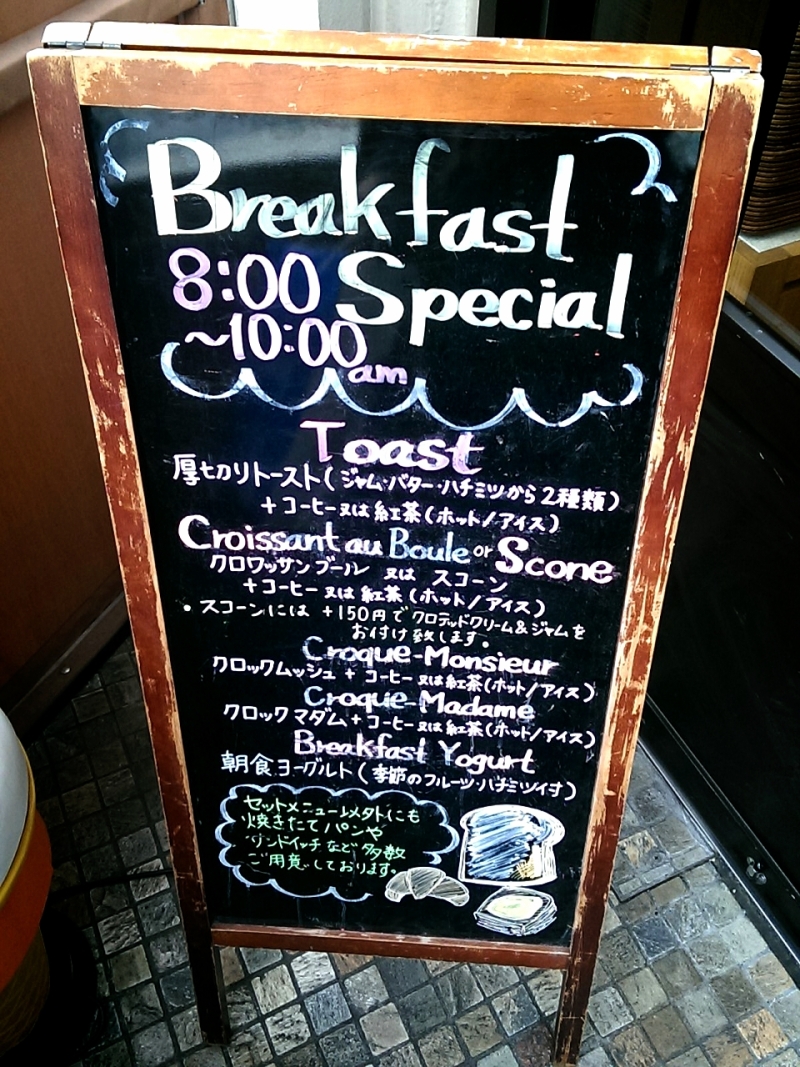 Breakfast
8:00 Special
~10:00
am
Toast
厚切りトースト(ジャム・バター・ハチミツから2種類)
+コーヒー又は紅茶(ホット/アイス)
Croissant au Boule or Scone
クロワッサンブール 又は スコーン
+コーヒー又は紅茶(ホット/アイス)
・スコーンには +150円でクロテッドクリーム&ジャムを
お付け致します。
Croque-Monsieur
クロックムッシュ+コーヒー又は紅茶(ホット/アイス)
Croque-Madame
クロックマダム+コーヒー又は紅茶(ホット/アイス)
Breakfast Yogurt
朝食ヨーグルト(季節のフルーツ・ハチミツ付)
セットメニュー以外にも
焼きたてパンや
サンドイッチなど多数
ご用意しております。